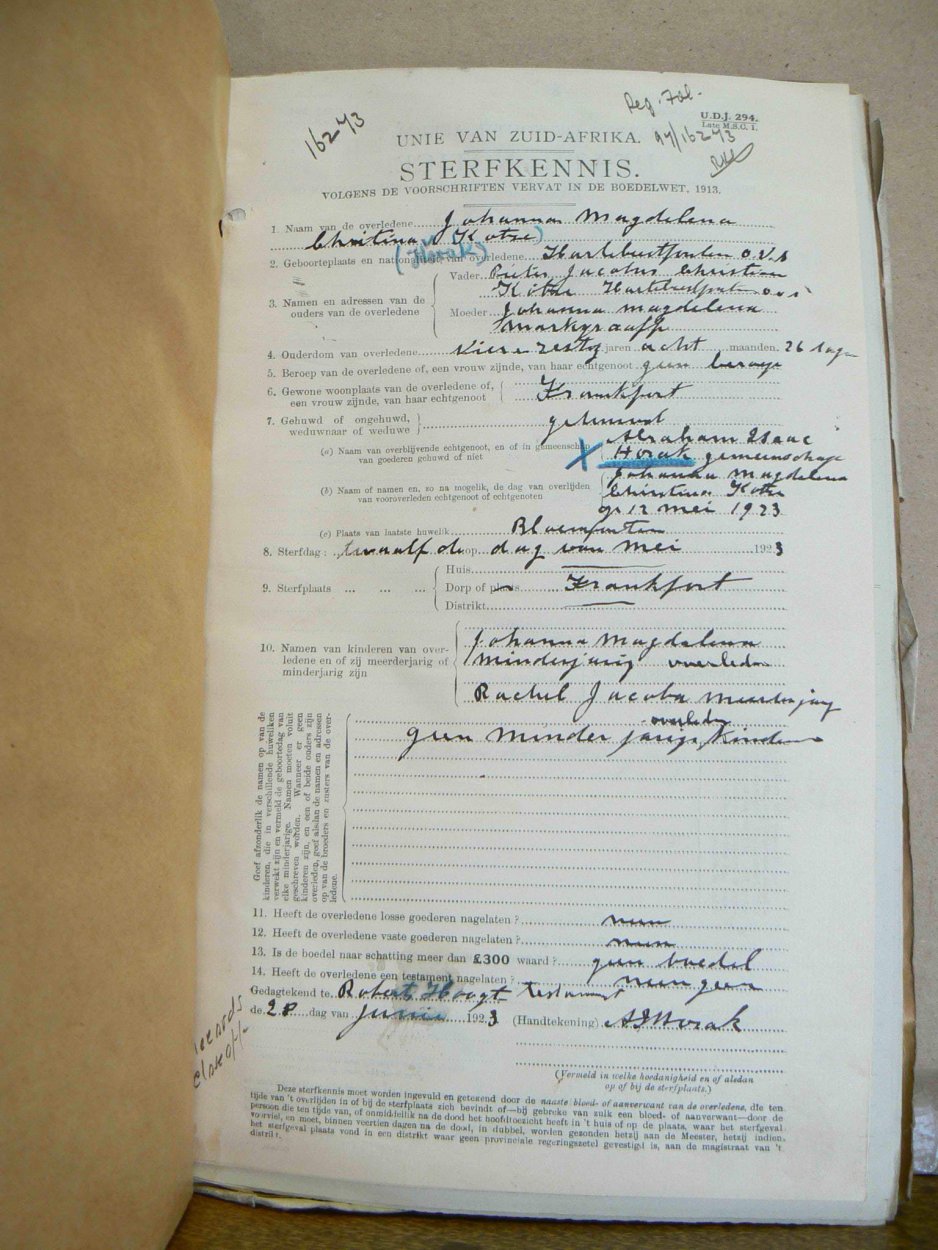 16273
Reg. Fol.
U.D.J. 294.
Late M.S.C. 1.
UNIE VAN ZUID-AFRIKA.
A4/16273
STERFKENNIS.
VOLGENS DE VOORSCHRIFTEN VERVAT IN DE BOEDELWET, 1913.
1. Naam van de overledene Johanna Magdelena
Christina Kotze
(Horak)
2. Geboorteplaats en nationaliteit van overledene Hartebeestfontein o.v.s
3. Namen en adressen van de ouders van de overledene
Vader Pieter Jacobus Christian
Kotze Hartebeestfontein o.v.s
Moeder Johanna Magdelena
Markgraaff
4. Ouderdom van overledene vier en zestig jaren acht maanden. 26 dagen
5. Beroep van de overledene of, een vrouw zijnde, van haar echtgenoot geen beroep
6. Gewone woonplaats van de overledene of,
een vrouw zijnde, van haar echtgenoot Frankfort
7. Gehuwd of ongehuwd,
weduwnaar of weduwe gehuwd
(a) Naam van overblijvende echtgenoot, en of in gemeenschap
van goederen gehuwd of niet
Abraham Isaac
X Horak gemeenschap
(b) Naam of namen en, zo na mogelik, de dag van overlijden
van vooroverleden echtgenoot of echtgenoten
Johanna Magdelena
Christina Kotze
op 12 Mei 1923
(c) Plaats van laatste huwelik Bloemfontein
8. Sterfdag: twaalf de op dag van Mei 1923
9. Sterfplaats ... ... ...
Huis
Dorp of plaats Frankfort
Distrikt
10. Namen van kinderen van overledene en of zij meerderjarig of minderjarig zijn
Johanna Magdelena
Minderjarig overleden
Rachel Jacoba Meerderjarig
overleden
geen minder jarige kinderen
Geef afzonderlik de namen op van de
kinderen, die in verschillende huweliken
verwekt zijn en vermeld de geboortedag van
elke minderjarige. Namen moeten voluit
geschreven worden. Wanneer er geen
kinderen zijn, en een of beide ouders zijn
overleden, geef alsdan de namen en adressen
op van de broeders en zusters van de overledene.
11. Heeft de overledene losse goederen nagelaten? neen
12. Heeft de overledene vaste goederen nagelaten? neen
13. Is de boedel naar schatting meer dan £300 waard? geen boedel
14. Heeft de overledene een testament nagelaten? neen geen
Testament
Gedagtekend te Robert Hoogt
de 28 dag van Junie 1923 (Handtekening) A I Horak
(Vermeld in welke hoedanigheid en of alsdan
op of bij de sterfplaats.)
Deze sterfkennis moet worden ingevuld en getekend door de naaste bloed- of aanverwant van de overledene, die ten
tijde van 't overlijden in of bij de sterfplaats zich bevindt of—bij gebreke van zulk een bloed- of aanverwant—door de
persoon die ten tijde van, of onmiddellik na de dood het hoofdtoezicht heeft in 't huis of op de plaats, waar het sterfgeval
voorviel, en moet, binnen veertien dagen na de dood, in dubbel, worden gezonden hetzij aan de Meester, hetzij indien
het sterfgeval plaats vond in een distrikt waar geen provinciale regeringszetel gevestigd is, aan de magistraat van 't
distrikt.